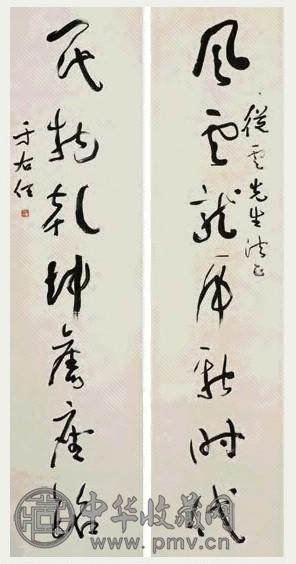 風雲龍虎新時代
從雲先生法正
民物乾坤舊座銘
于右任
中华收藏网
www.pmv.cn